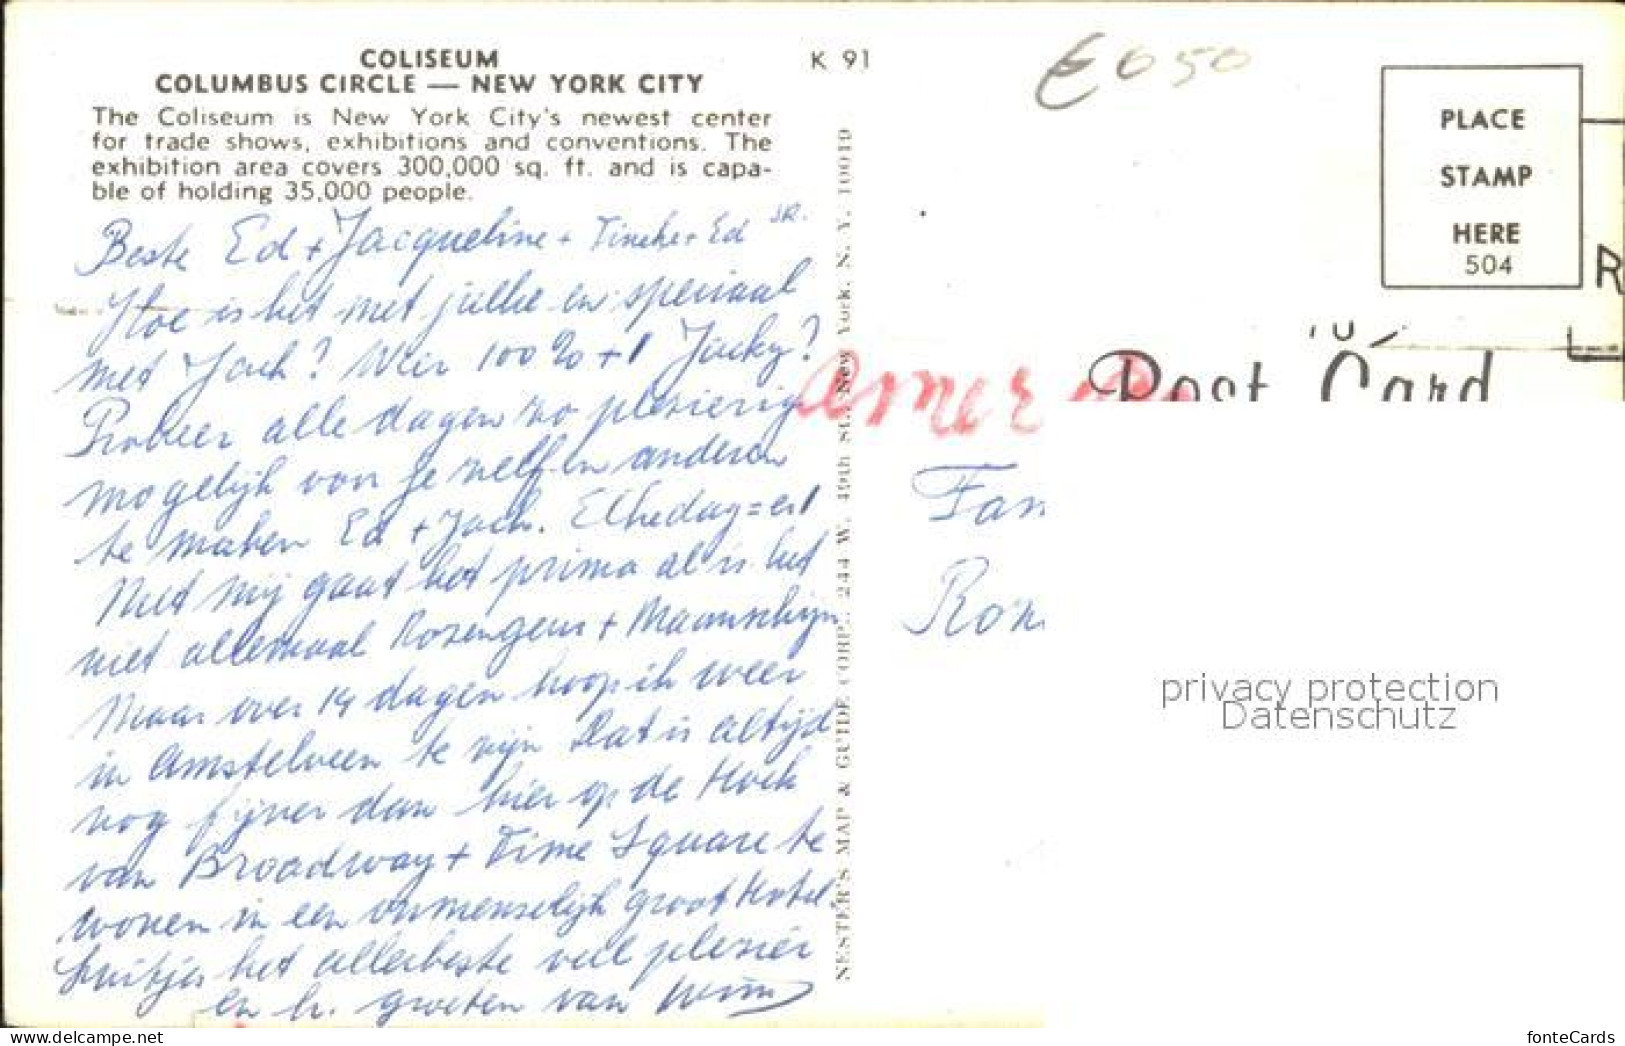 COLISEUM
COLUMBUS CIRCLE — NEW YORK CITY
The Coliseum is New York City's newest center
for trade shows, exhibitions and conventions. The
exhibition area covers 300,000 sq. ft. and is capa-
ble of holding 35,000 people.
K 91
€ 0 50
PLACE
STAMP
HERE
504
R
Beste Ed + Jacqueline + Tineke + Ed SR.
Hoe is het met jullie en speciaal
met Jack? Weer 100% + 1 Jacky?
Probeer alle dagen zo plezierig
mogelijk voor je zelf en anderen
te maken Ed + Jack. Elkedag = er 1
Met mij gaat het prima al is het
niet allemaal Rozengeur + Maanschijn
Maar over 14 dagen hoop ik weer
in Amstelveen te zijn Dat is altijd
nog fijner dan hier op de Hoek
van Broadway + Time Square te
wonen in een onmenselijk groot Hotel.
Luitjes het allerbeste veel plezier
en h. groeten van Wim
NESTER'S MAP & GUIDE CORP., 244 W. 49th St., New York, N. Y. 10019
Post Card
Fam
privacy protection
Datenschutz
fonteCards